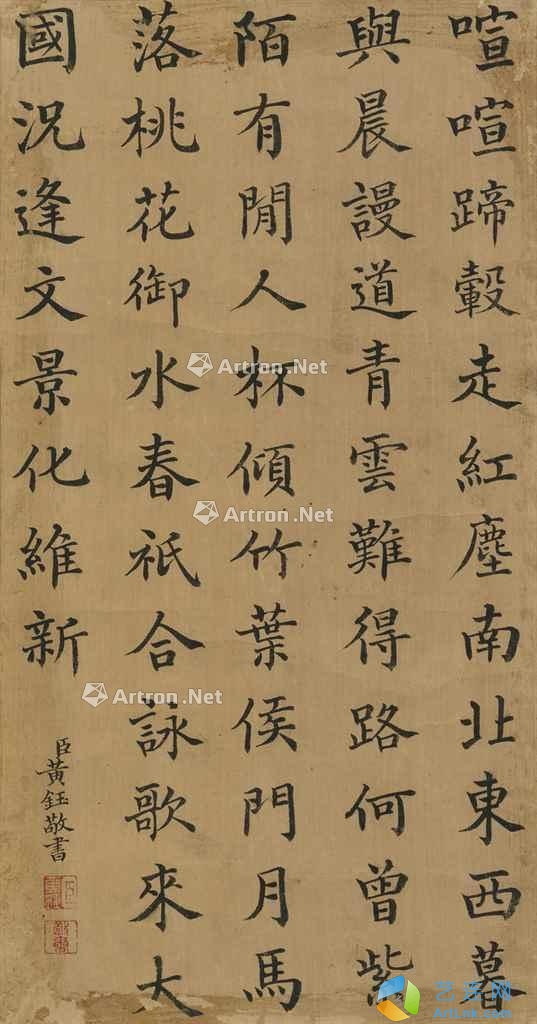 喧喧蹄轂走紅塵南北東西暮
與晨謾道青雲難得路何曾紫
陌有閒人杯傾竹葉侯門月馬
落桃花御水春祇合詠歌來大
國況逢文景化維新
臣黃鈺敬書
Artron.Net
Artron.Net
Artron.Net
艺乐网